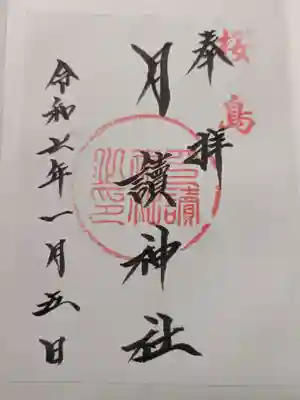 桜島
奉拝
月讀神社
令和六年一月五日